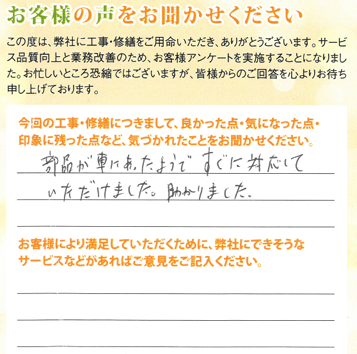 お客様の声をお聞かせください
この度は、弊社に工事・修繕をご用命いただき、ありがとうございます。サービ
ス品質向上と業務改善のため、お客様アンケートを実施することになりまし
た。お忙しいところ恐縮ではございますが、皆様からのご回答を心よりお待ち
申し上げております。
今回の工事・修繕につきまして、良かった点・気になった点・
印象に残った点など、気づかれたことをお聞かせください。
部品が車にあったようで すぐに対応して
いただけました。助かりました。
お客様により満足していただくために、弊社にできそうな
サービスなどがあればご意見をご記入ください。